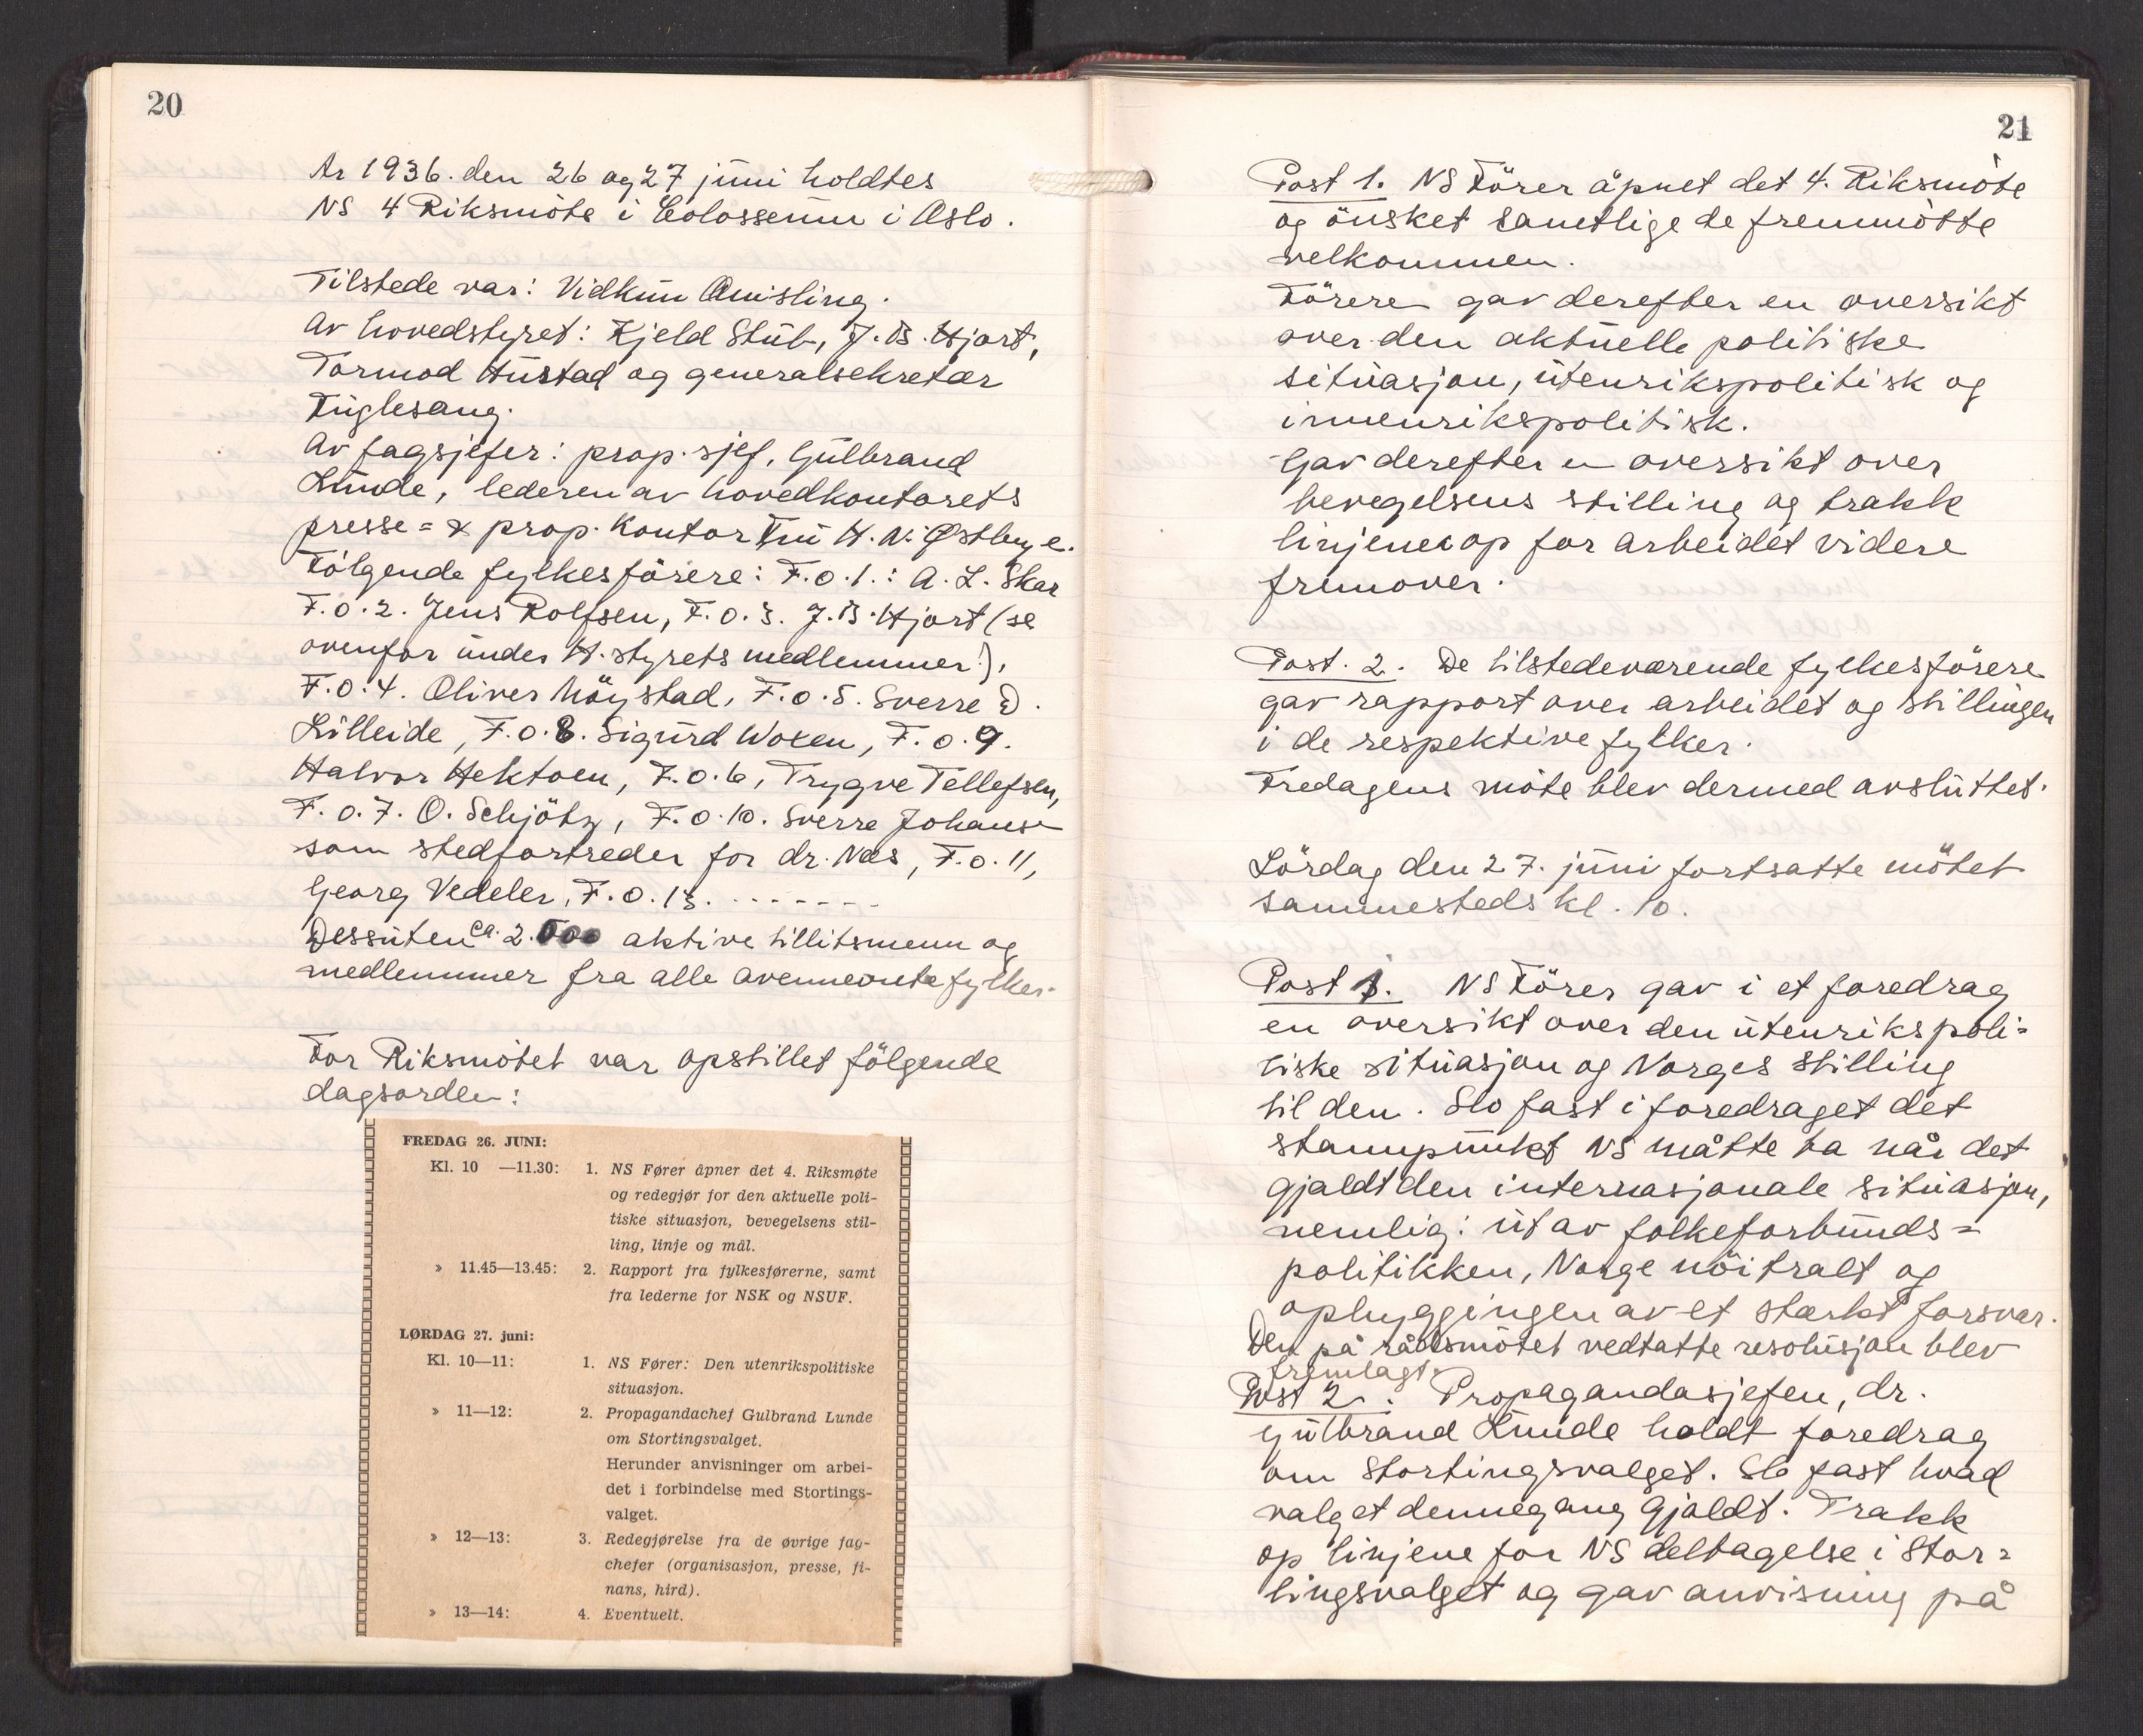 20
År 1936. den 26 og 27 juni holdtes
NS 4 Riksmöte i Colosseum i Oslo.
Tilstede var: Vidkun Quisling.
Av hovedstyret: Kjeld Stub, J. B. Hjort,
Tormod Hustad og generalsekretær
Fuglesang.
Av fagsjefer: prop. sjef, Gulbrand
Lunde, lederen av hovedkontorets
presse= & prop. kontor Fru H. N. Østbye.
Følgende fylkesförere: F.o.1.: A. L. Skar
F.o.2. Jens Rolfsen, F.o.3. J. B. Hjort (se
ovenfor under H. styrets medlemmer!),
F.o.4. Oliver Möystad, F.o.5. Sverre D.
Lilleide, F.o.8. Sigurd Woxen, F.o.9.
Halvor Hektoen, F.o.6, Trygve Tellefsen,
F.o.7. O. Schjötz, F.o.10. Sverre Johansen
som stedfortreder for dr. Næs, F.o.11,
Georg Vedeler, F.o.13. - - - - - - -
Dessuten ca. 2.000 aktive tillitsmenn og
medlemmer fra alle ovennevnte fylker.
For Riksmötet var opstillet fölgende
dagsorden:
FREDAG 26. JUNI:
Kl. 10 —11.30: 1. NS Fører åpner det 4. Riksmøte
og redegjør for den aktuelle poli-
tiske situasjon, bevegelsens stil-
ling, linje og mål.
» 11.45—13.45: 2. Rapport fra fylkesførerne, samt
fra lederne for NSK og NSUF.
LØRDAG 27. juni:
Kl. 10—11: 1. NS Fører: Den utenrikspolitiske
situasjon.
» 11—12: 2. Propagandachef Gulbrand Lunde
om Stortingsvalget.
Herunder anvisninger om arbei-
det i forbindelse med Stortings-
valget.
» 12—13: 3. Redegjørelse fra de øvrige fag-
chefer (organisasjon, presse, fi-
nans, hird).
» 13—14: 4. Eventuelt.
21
Post 1. NS Förer åpnet det 4. Riksmöte
og önsket samtlige de fremmötte
velkommen.
Förere gav derefter en oversikt
over den aktuelle politiske
situasjon, utenrikspolitisk og
innenrikspolitisk.
Gav derefter en oversikt over
bevegelsens stilling og trakk
linjene op for arbeidet videre
fremover.
Post. 2. De tilstedeværende fylkesförere
gav rapport over arbeidet og stillingen
i de respektive fylker.
Fredagens möte blev dermed avsluttet.
Lördag den 27. juni fortsatte mötet
sammesteds kl. 10.
Post 1. NS Förer gav i et foredrag
en oversikt over den utenrikspoli=
tiske situasjon og Norges stilling
til den. Slo fast i foredraget det
stannpunkt NS måtte ta når det
gjaldt den internasjonale situasjon,
nemlig: ut av folkeforbunds=
politikken, Norge nöitralt og
opbyggingen av et sterkt forsvar.
Den på rådsmötet vedtatte resolusjon blev
fremlagt.
Post 2. Propagandasjefen, dr.
Gulbrand Lunde holdt foredrag
om Stortingsvalget. Slo fast hvad
valget dennegang gjaldt. Trakk
op linjene for NS deltagelse i Stor=
tingsvalget og gav anvisning på